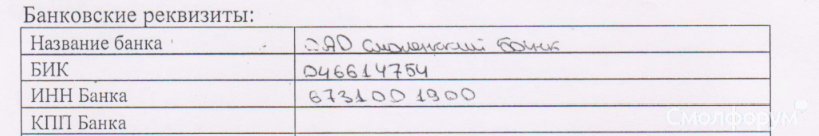 Банковские реквизиты:
Название банка ОАО Смоленский Банк
БИК 046614754
ИНН Банка 6731001900
КПП Банка
Смолфорум